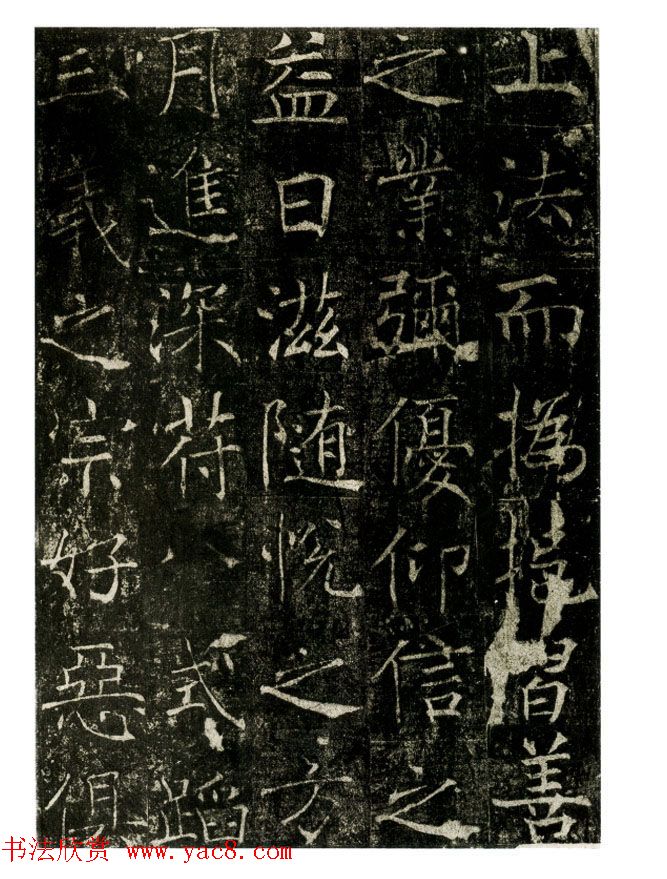 上法而撝持習善
之業彌優仰信之
益日滋随悦之方
月進深符八式蹈
三義之宗好惡俱
书法欣赏 www.yac8.com